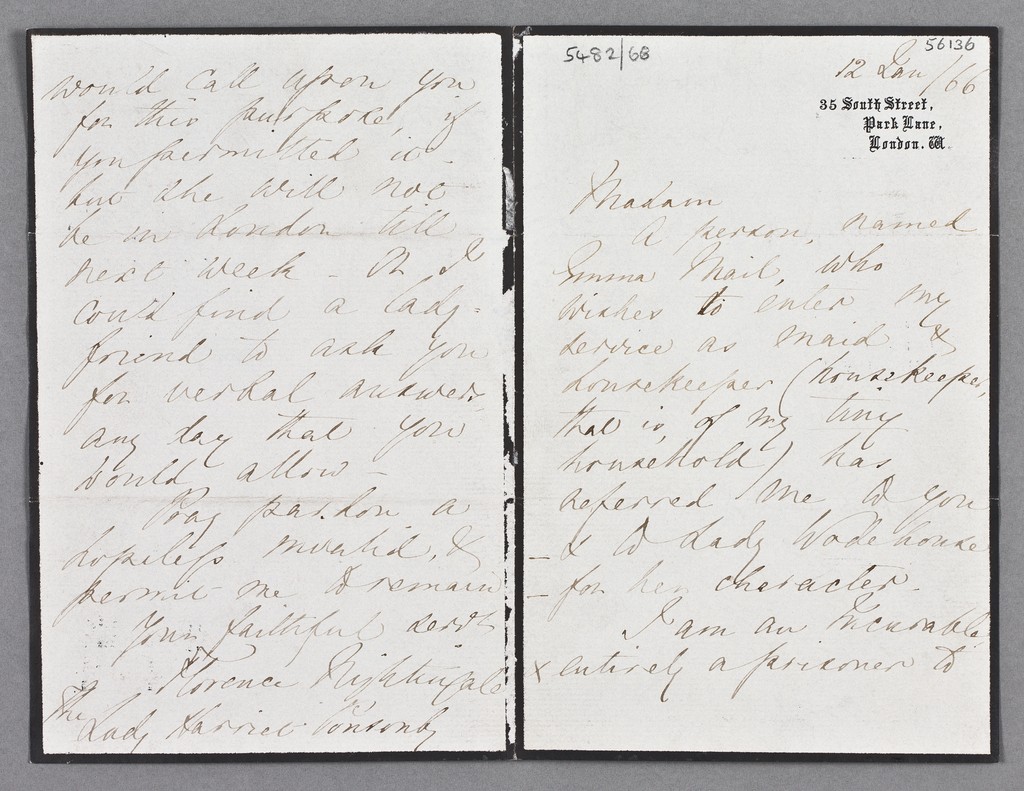 5482/68
56136
12 Jan/66
35 South Street,
Park Lane,
London. W.
Madam
A person, named
Emma Mail, who
wishes to enter my
service as Maid &
Housekeeper (housekeeper,
that is, of my tiny
household) has
referred me to you
& to Lady Wodehouse
for her character.
I am an Incurable,
entirely a prisoner to
would call upon you
for this purpose, if
you permitted it -
but she will not
be in London till
next week - Or I
could find a lady-
friend to ask you
for verbal answers,
any day that you
would allow -
Pray pardon a
hopeless invalid, &
permit me to remain
Your faithful servt
Florence Nightingale
The
Lady Harriet Ponsonby